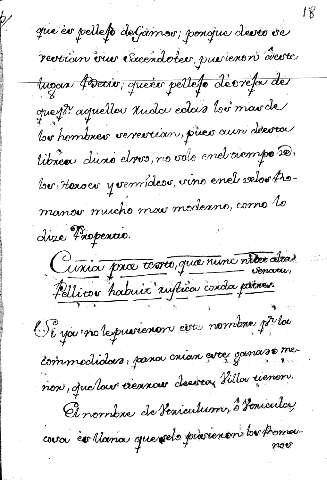 18
que es pellejo de Gamos; porque desto se
vestian sus Sacerdotes, pusieron à este
lugar que es pellejo de oveja de
que pr. aquella ruda edad los mas de
los hombres se vestian, pues aun desta
librea duró el uso, no solo en el tiempo d.
los y semideos, sino en el de los Ro-
manos mucho mas moderno, como lo
dize Propercio.
Curia præ texto, quæ nunc nitet alta
senatu,
Pellitos habuit rustica corda patres.
O si ya no le pusieron este nombre pr. la
commodidad, para criar este ganado me-
nor, que las tierras desta Villa tienen.
El nombre de Vericulum, ô Vericula,
cosa es llana que se lo pusieron los Roma-
nos